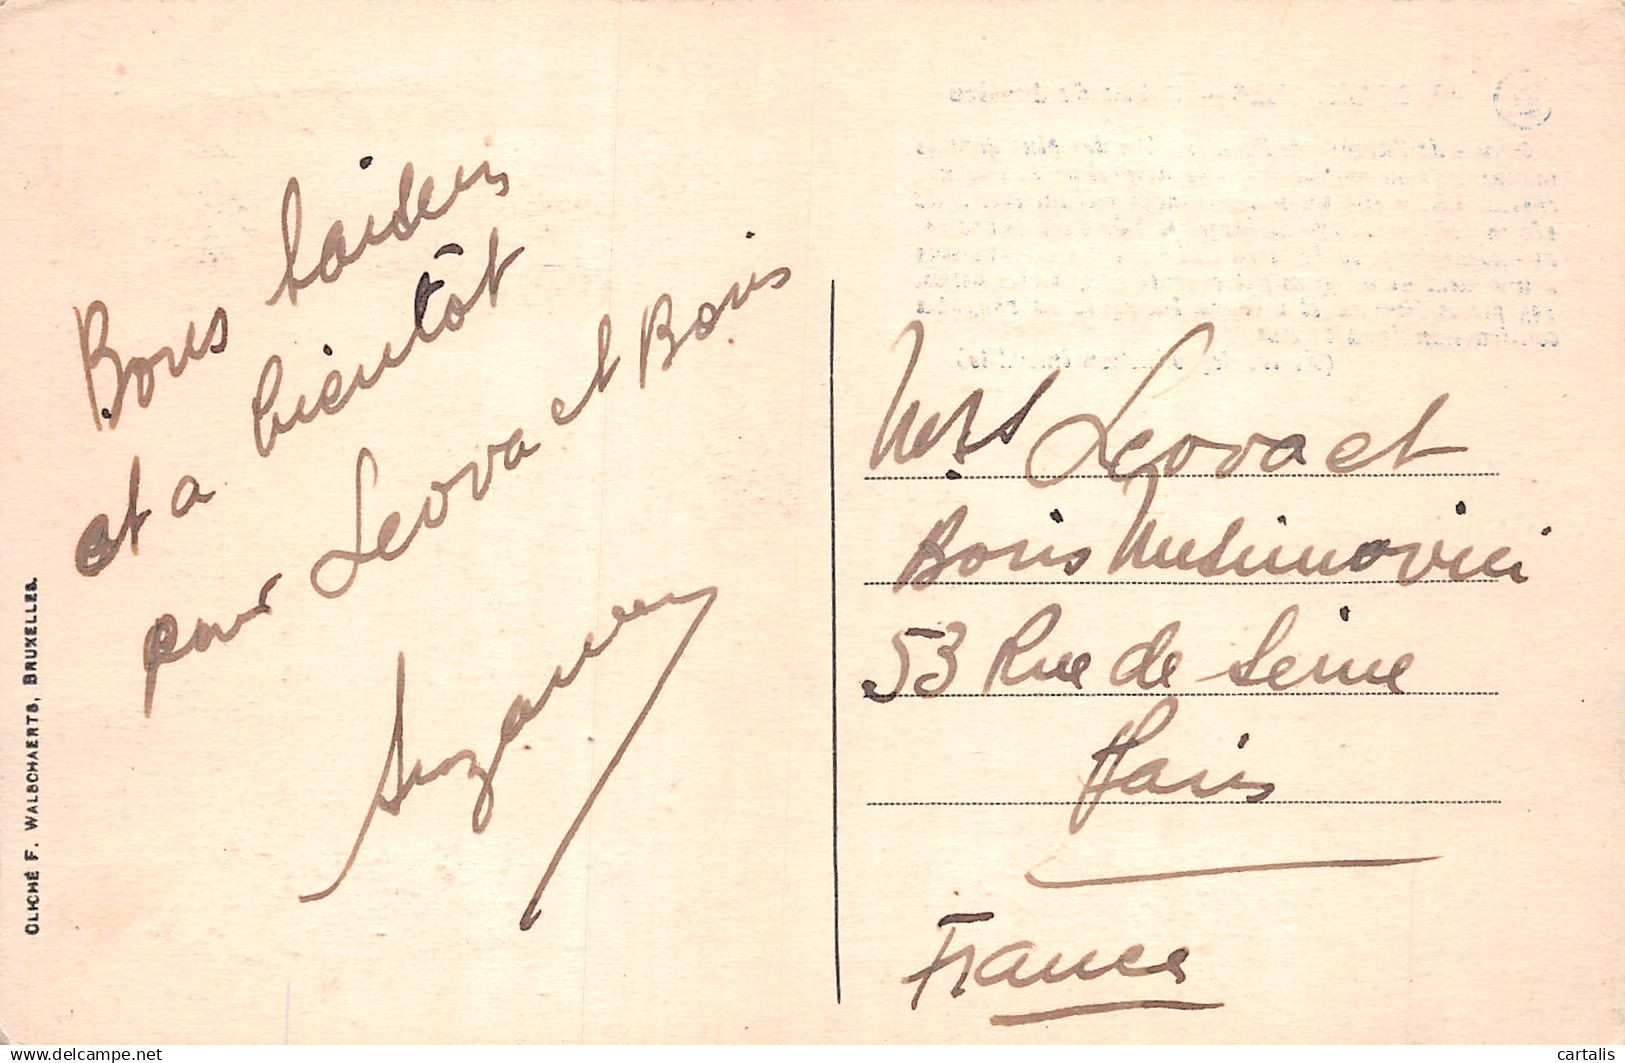 Bons baisers
et a bientôt
pour Leova et Boris
Suzanne
CLICHÉ F. WALSCHAERTS, BRUXELLES.
Leova et
Boris
53 Rue de Seine
Paris
France
www.delcampe.net
cartalis